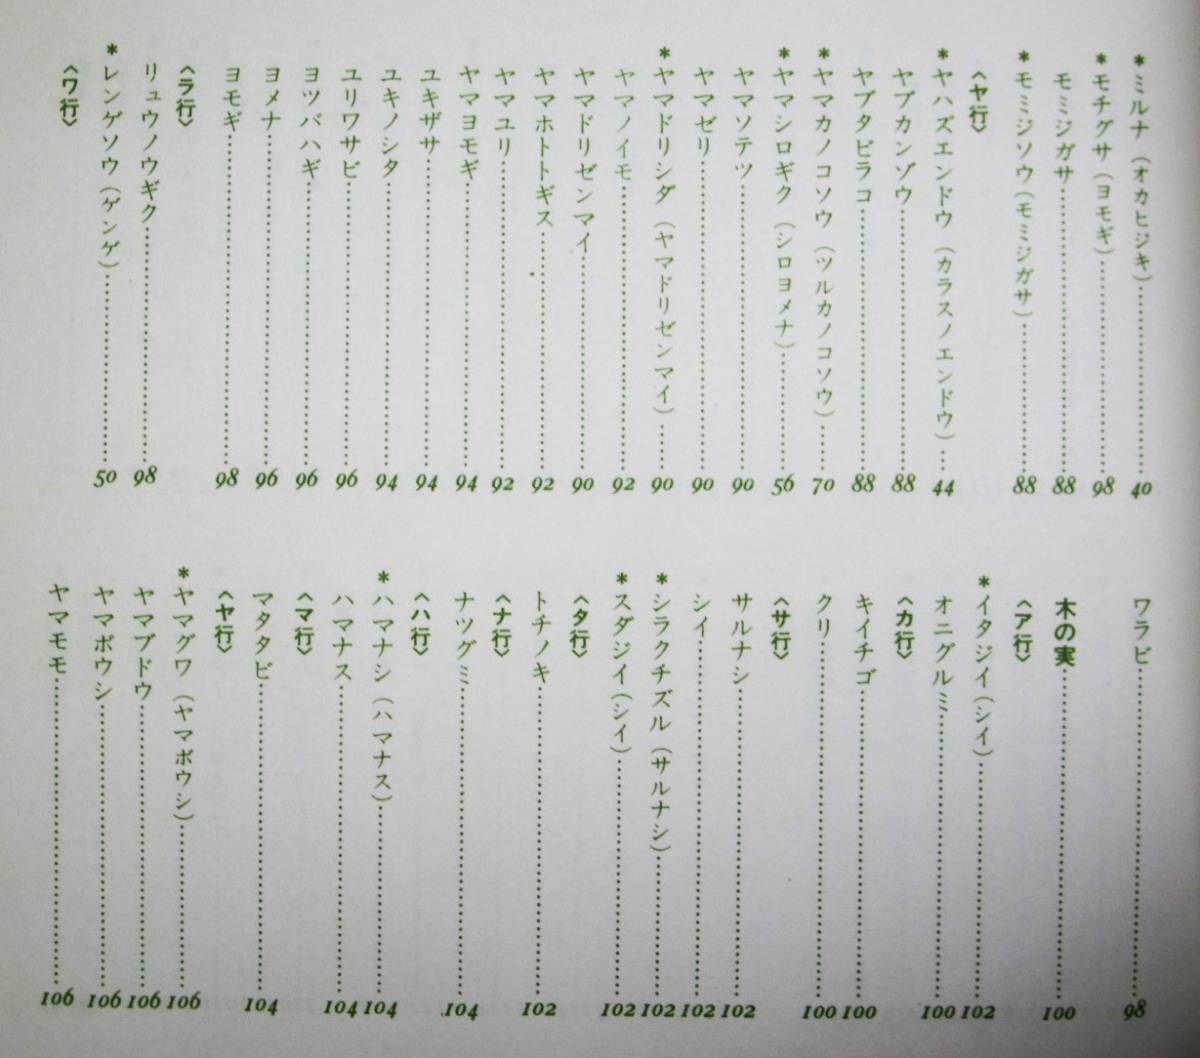 *ミルナ（オカヒジキ）……40
*モチグサ（ヨモギ）……98
モミジガサ……88
*モミジソウ（モミジガサ）……88
〈ヤ行〉
*ヤハズエンドウ（カラスノエンドウ）……44
ヤブカンゾウ……88
ヤブタビラコ……88
*ヤマカノコソウ（ツルカノコソウ）……70
*ヤマシロギク（シロヨメナ）……56
ヤマソテツ……90
ヤマゼリ……90
*ヤマドリシダ（ヤマドリゼンマイ）……90
ヤマノイモ……92
ヤマドリゼンマイ……90
ヤマホトトギス……92
ヤマユリ……92
ヤマヨモギ……94
ユキザサ……94
ユキノシタ……94
ユリワサビ……96
ヨツバハギ……96
ヨメナ……96
ヨモギ……98
〈ラ行〉
リュウノウギク……98
*レンゲソウ（ゲンゲ）……50
〈ワ行〉
ワラビ……98
木の実……100
〈ア行〉
*イタジイ（シイ）……102
オニグルミ……100
〈カ行〉
キイチゴ……100
クリ……100
〈サ行〉
サルナシ……102
シイ……102
*シラクチズル（サルナシ）……102
*スダジイ（シイ）……102
〈タ行〉
トチノキ……102
〈ナ行〉
ナツグミ……104
〈ハ行〉
*ハマナシ（ハマナス）……104
ハマナス……104
〈マ行〉
マタタビ……104
〈ヤ行〉
*ヤマグワ（ヤマボウシ）……106
ヤマブドウ……106
ヤマボウシ……106
ヤマモモ……106